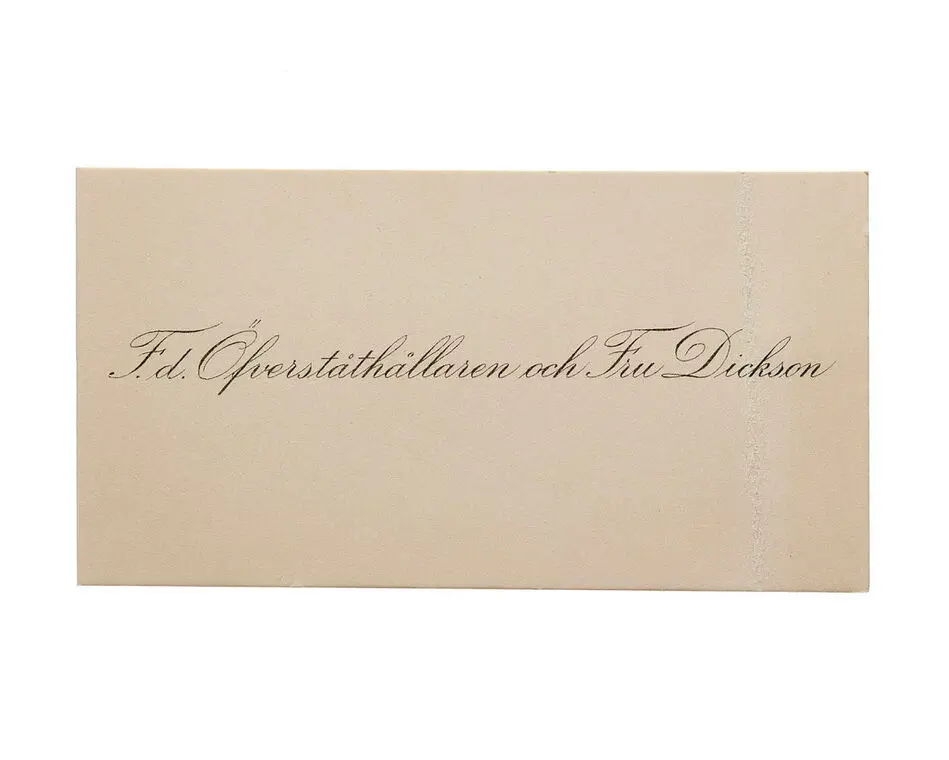 F. d. Öfverståthållaren och Fru Dickson